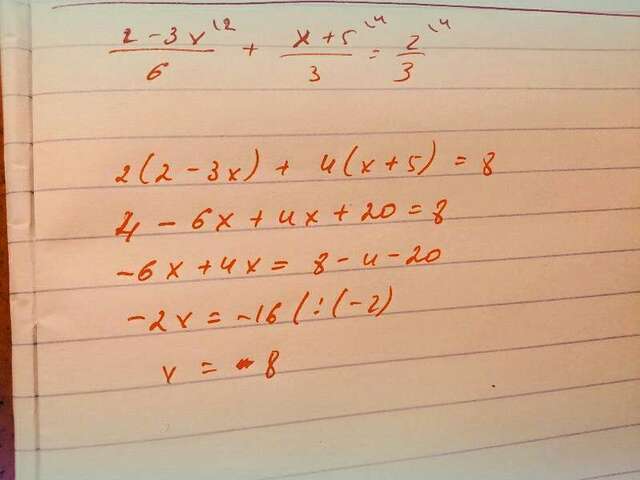 (2 - 3x)/6 \2 + (x + 5)/3 \4 = 2/3 \4
2(2 - 3x) + 4(x + 5) = 8
4 - 6x + 4x + 20 = 8
-6x + 4x = 8 - 4 - 20
-2x = -16 (:(-2)
x = 8